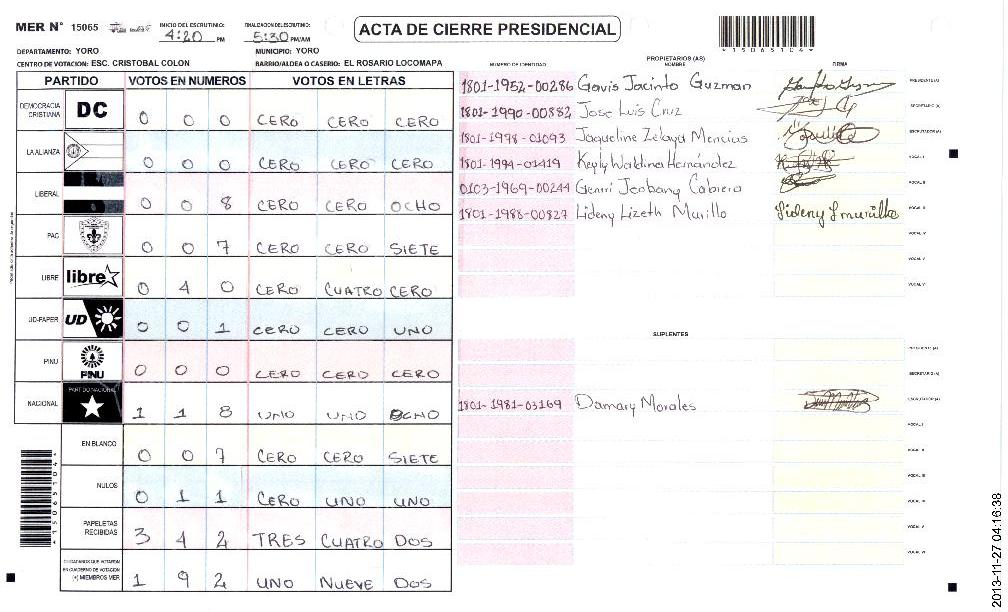 MER N° 15065
INICIO DEL ESCRUTINIO: 4:20 PM
FINALIZACION DEL ESCRUTINIO: 5:30 PM/AM
ACTA DE CIERRE PRESIDENCIAL
DEPARTAMENTO: YORO
MUNICIPIO: YORO
CENTRO DE VOTACION: ESC. CRISTOBAL COLON
BARRIO/ALDEA O CASERIO: EL ROSARIO LOCOMAPA
PARTIDO VOTOS EN NUMEROS VOTOS EN LETRAS
DEMOCRACIA CRISTIANA DC 0 0 0 CERO CERO CERO
LA ALIANZA 0 0 0 CERO CERO CERO
LIBERAL 0 0 8 CERO CERO OCHO
PAC 0 0 7 CERO CERO SIETE
LIBRE libre 0 4 0 CERO CUATRO CERO
UD-FAPER UD 0 0 1 CERO CERO UNO
PINU PINU 0 0 0 CERO CERO CERO
NACIONAL PARTIDO NACIONAL 1 1 8 UNO UNO OCHO
EN BLANCO 0 0 7 CERO CERO SIETE
NULOS 0 1 1 CERO UNO UNO
PAPELETAS RECIBIDAS 3 4 2 TRES CUATRO DOS
CIUDADANOS QUE VOTARON EN CUADERNO DE VOTACION (+) MIEMBROS MER 1 9 2 UNO NUEVE DOS
PROPIETARIOS (AS)
NUMERO DE IDENTIDAD NOMBRE FIRMA
1801-1952-00286 Gavis Jacinto Guzman PRESIDENTE(A)
1801-1990-00882 Jose Luis Cruz SECRETARIO (A)
1801-1998-01093 Jaqueline Zelaya Mencias ESCRUTADOR (A)
1801-1994-01419 Keyly Waldina Hernández VOCAL I
0103-1969-00244 VOCAL II
1801-1988-00827 Lideny Lizeth Murillo VOCAL III
VOCAL IV
VOCAL V
VOCAL VI
SUPLENTES
PRESIDENTE (A)
SECRETARIO (A)
1801-1981-03169 Damary Morales ESCRUTADOR (A)
VOCAL I
VOCAL II
VOCAL III
VOCAL IV
VOCAL V
VOCAL VI
*15065104*
2013-11-27 04:16:38